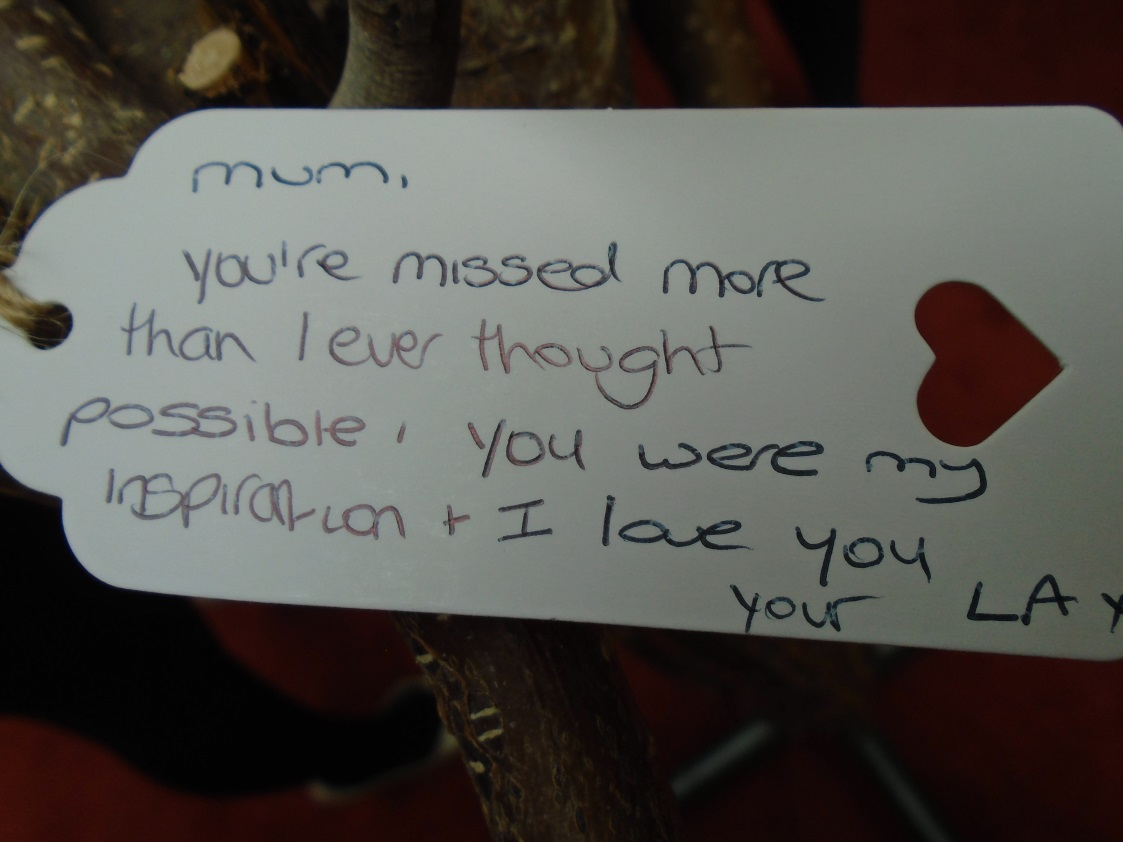 mum,
you're missed more
than I ever thought
possible, you were my
inspiration + I love you
your LA x